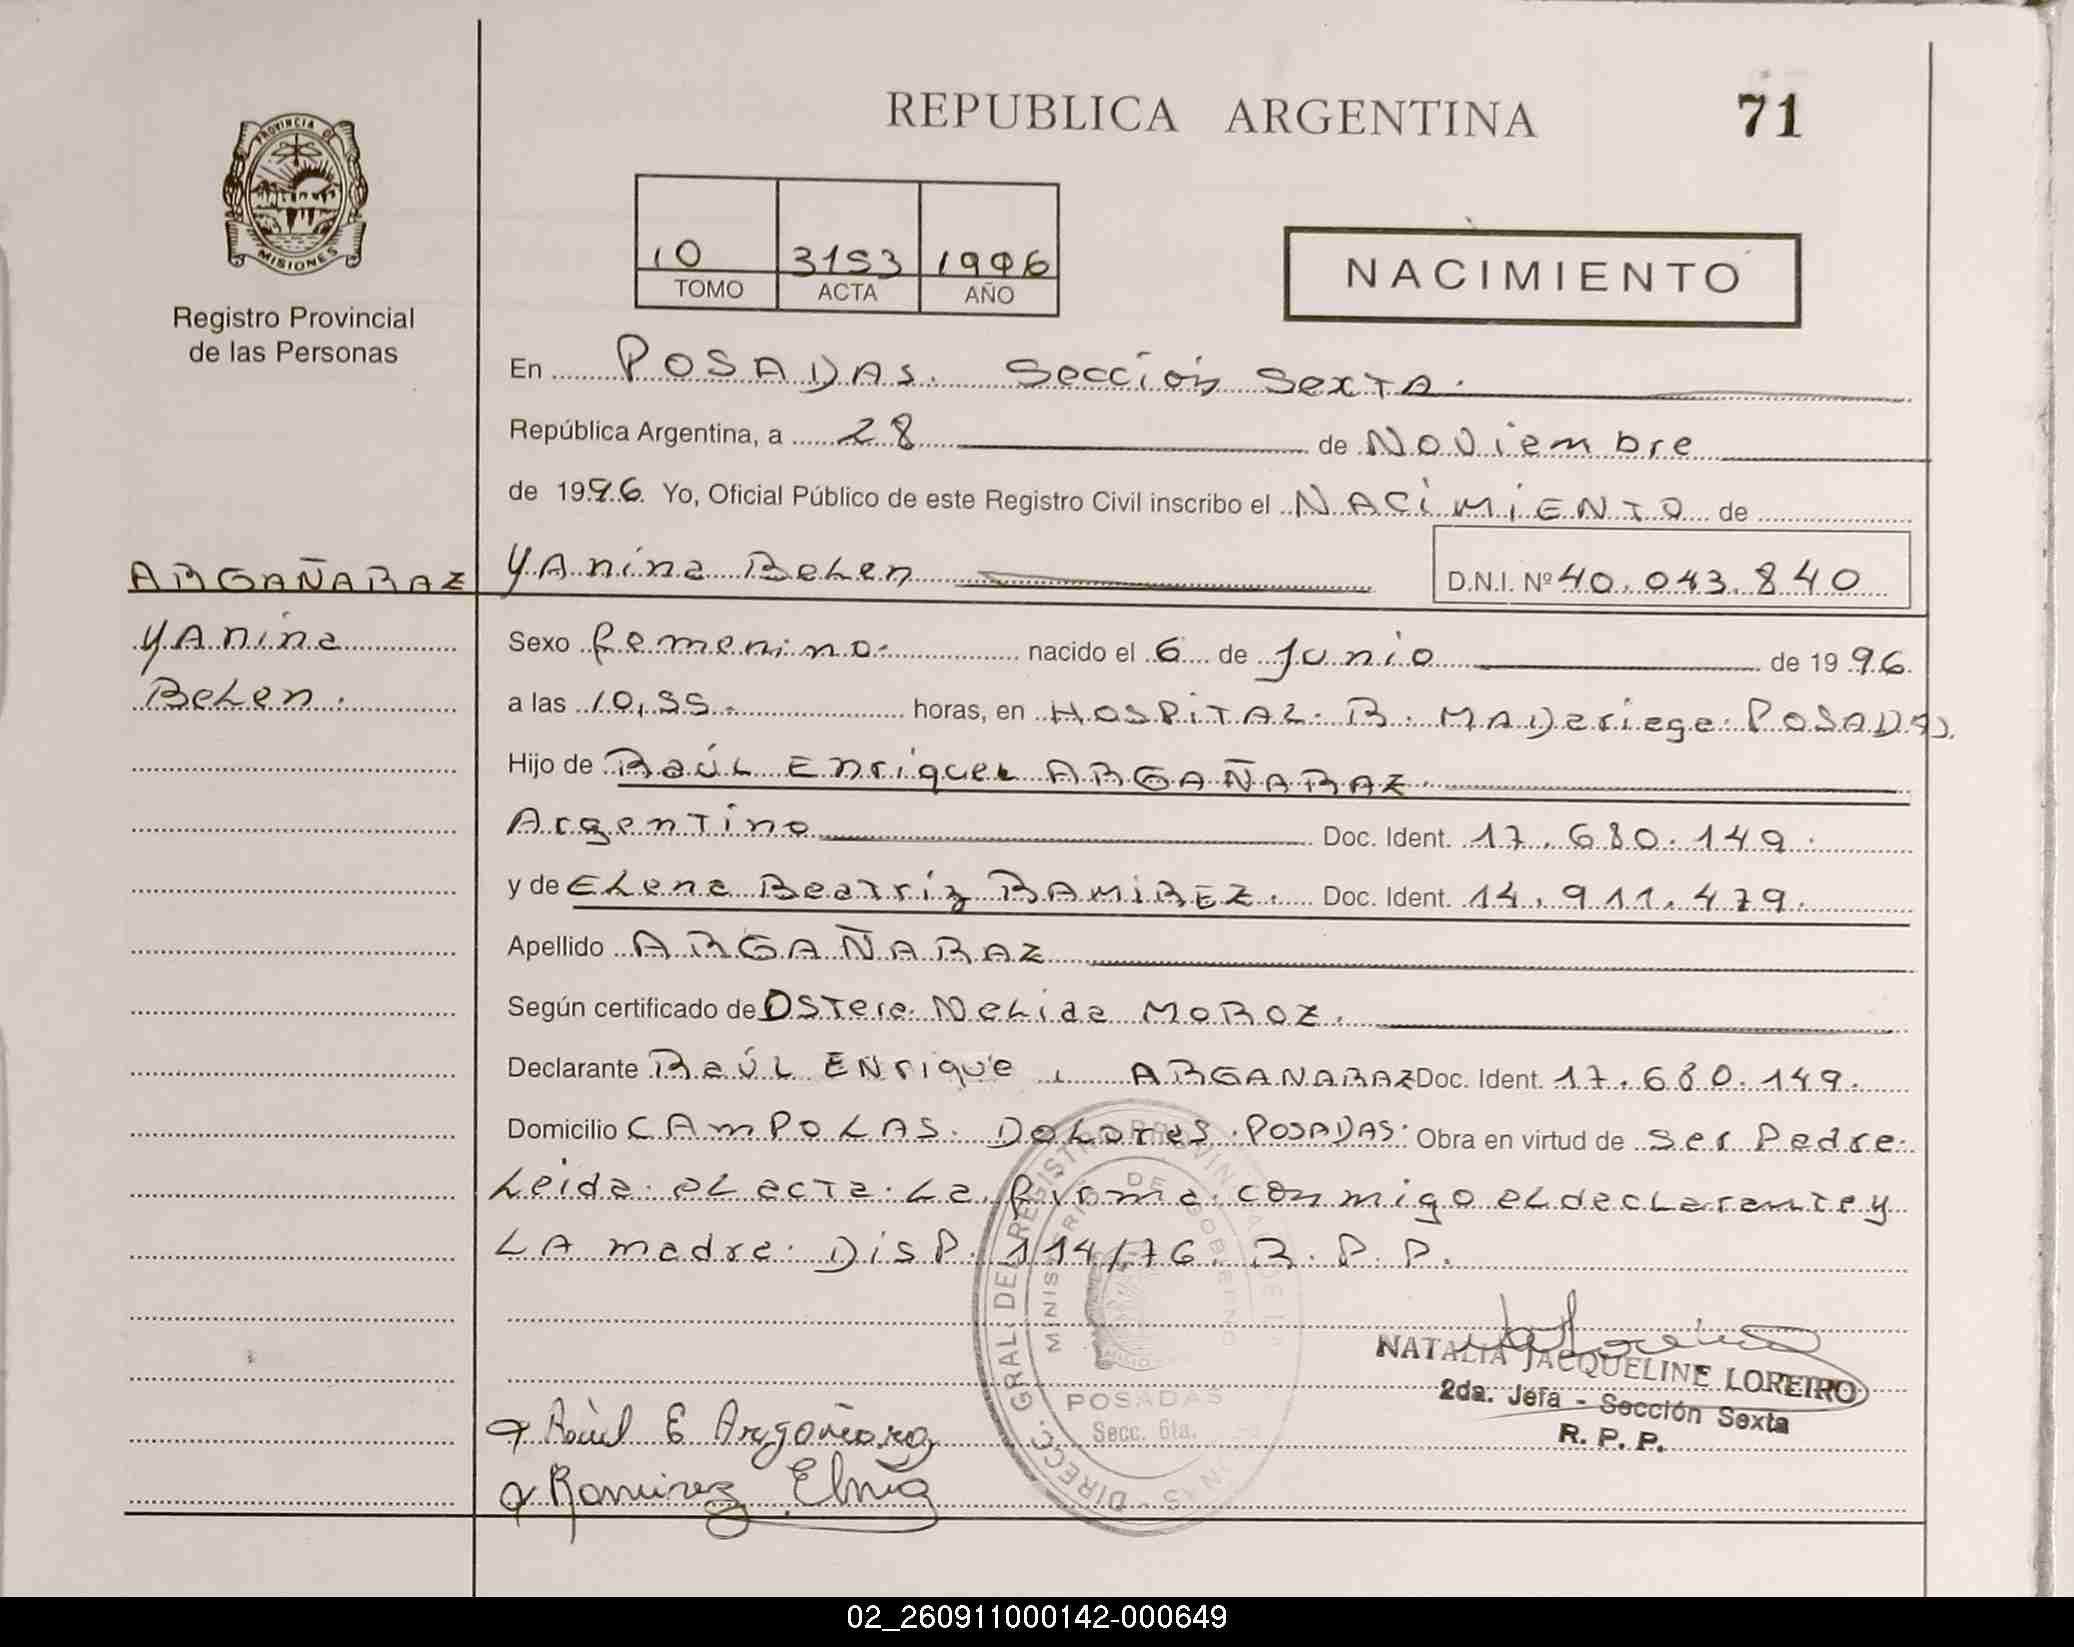 REPUBLICA ARGENTINA
71
PROVINCIA DE
MISIONES
Registro Provincial
de las Personas
10 3153 1996
TOMO ACTA AÑO
NACIMIENTO
En POSADAS. Sección Sexta.
República Argentina, a 28 de Noviembre
de 1996. Yo, Oficial Público de este Registro Civil inscribo el NACIMIENTO de
ARGAÑARAZ
YAnina BeLen D.N.I. Nº 40.043.840
YAnina
BeLen.
Sexo femenino. nacido el 6 de Junio de 1996.
a las 10,55. horas, en HOSPITAL. R. MADariaga. POSADAS.
Hijo de RaúL Enrique ARGAÑARAZ.
Argentino Doc. Ident. 17.680.149.
y de ELena Beatriz RAMIREZ. Doc. Ident. 14.911.479.
Apellido ARGAÑARAZ
Según certificado de OSTera. NeLida MOROZ.
Declarante RaúL ENrique ARGANARAZ Doc. Ident. 17.680.149.
Domicilio CAmPO LAS. DoLores. POSADAS. Obra en virtud de Ser Padre.
Leida. eL acta. La. firma. conmigo eL decLarante y
LA madre. DisP. 114/76. R. P. P.
DIRECC. GRAL. DEL REGISTRO PROVINCIAL DE LAS PERSONAS
MINISTERIO DE GOBIERNO
POSADAS
Secc. 6ta.
NATALIA JACQUELINE LOREIRO
2da. Jefa - Sección Sexta
R. P. P.
Raúl E Argañaraz
Ramirez Elena
02_260911000142-000649